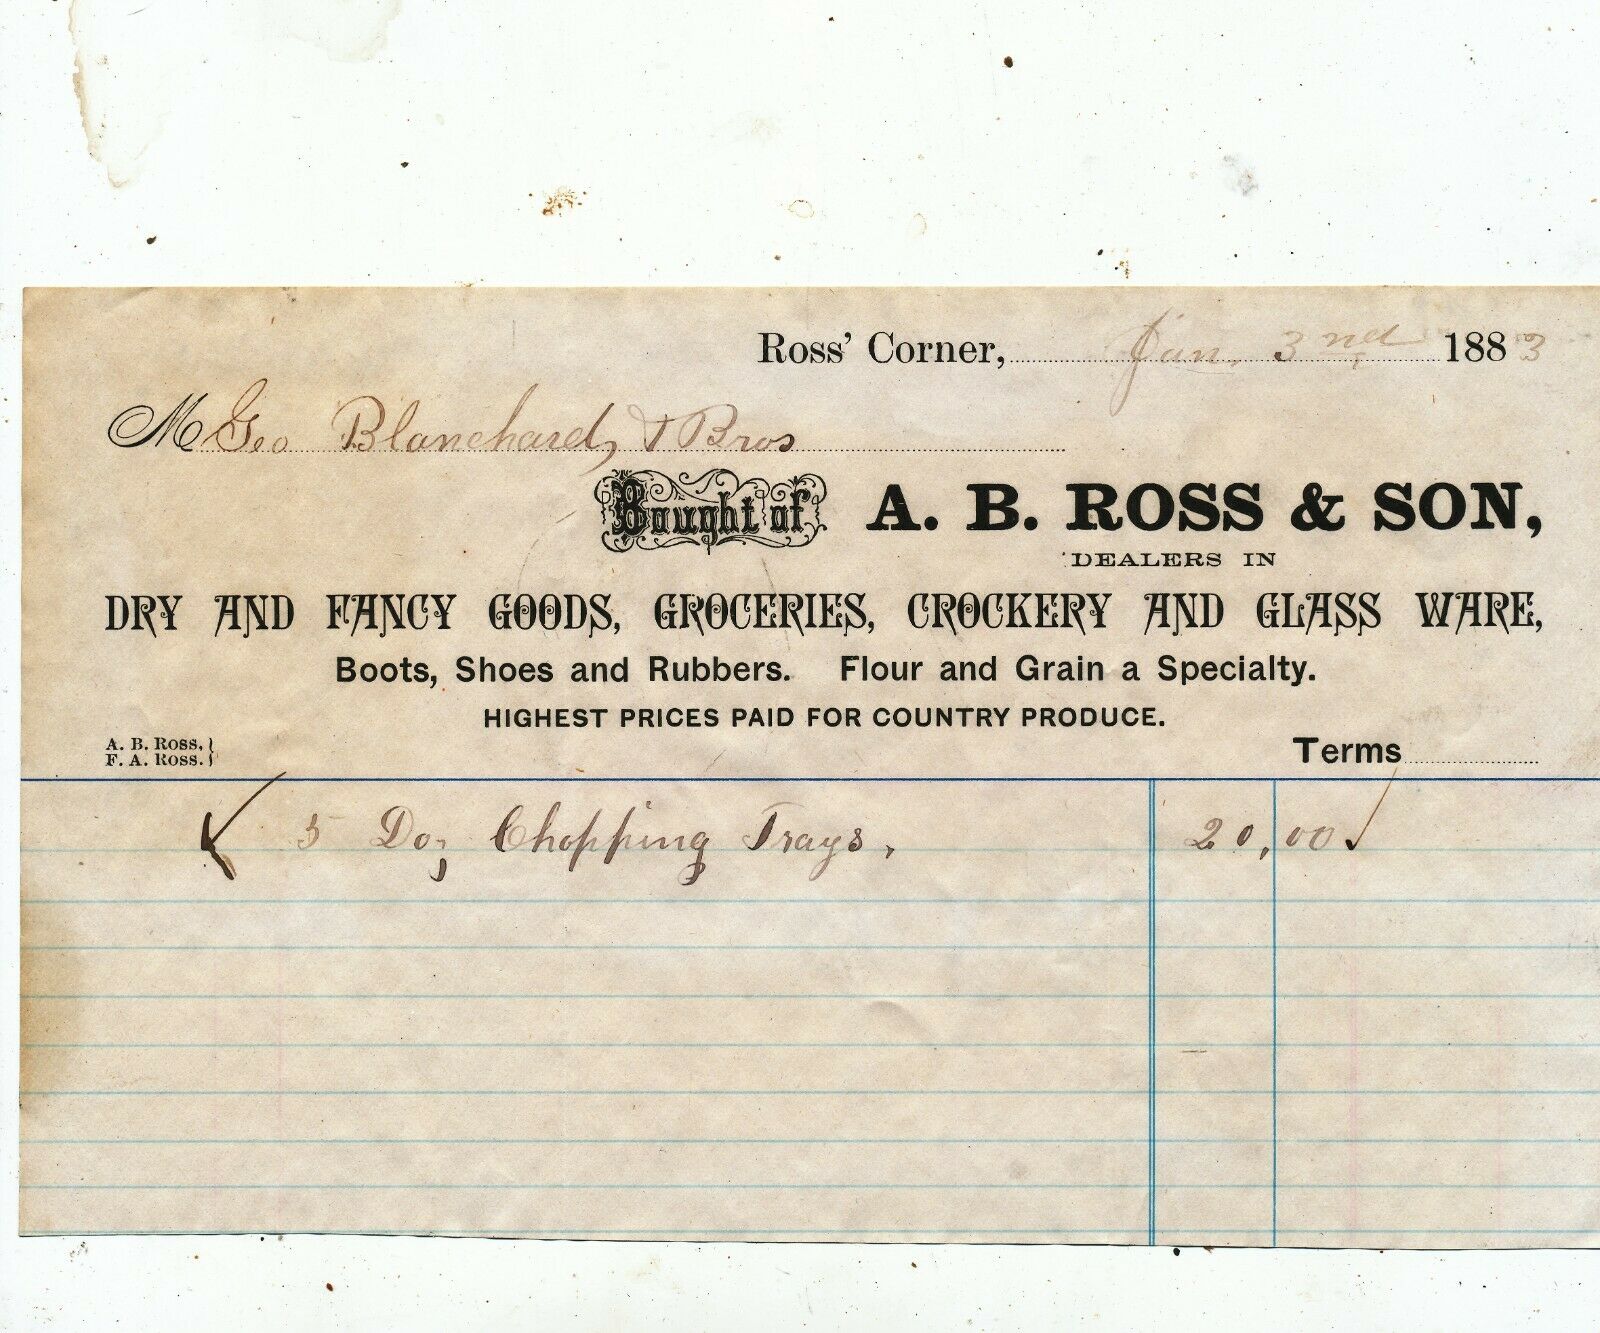 Ross' Corner, Jan. 3nd, 1883
M Geo Blanchard, & Bros
Bought of A. B. ROSS & SON,
DEALERS IN
DRY AND FANCY GOODS, GROCERIES, CROCKERY AND GLASS WARE,
Boots, Shoes and Rubbers. Flour and Grain a Specialty.
HIGHEST PRICES PAID FOR COUNTRY PRODUCE.
A. B. Ross, }
F. A. Ross. }
Terms
5 Doz Chopping Trays, 20,00